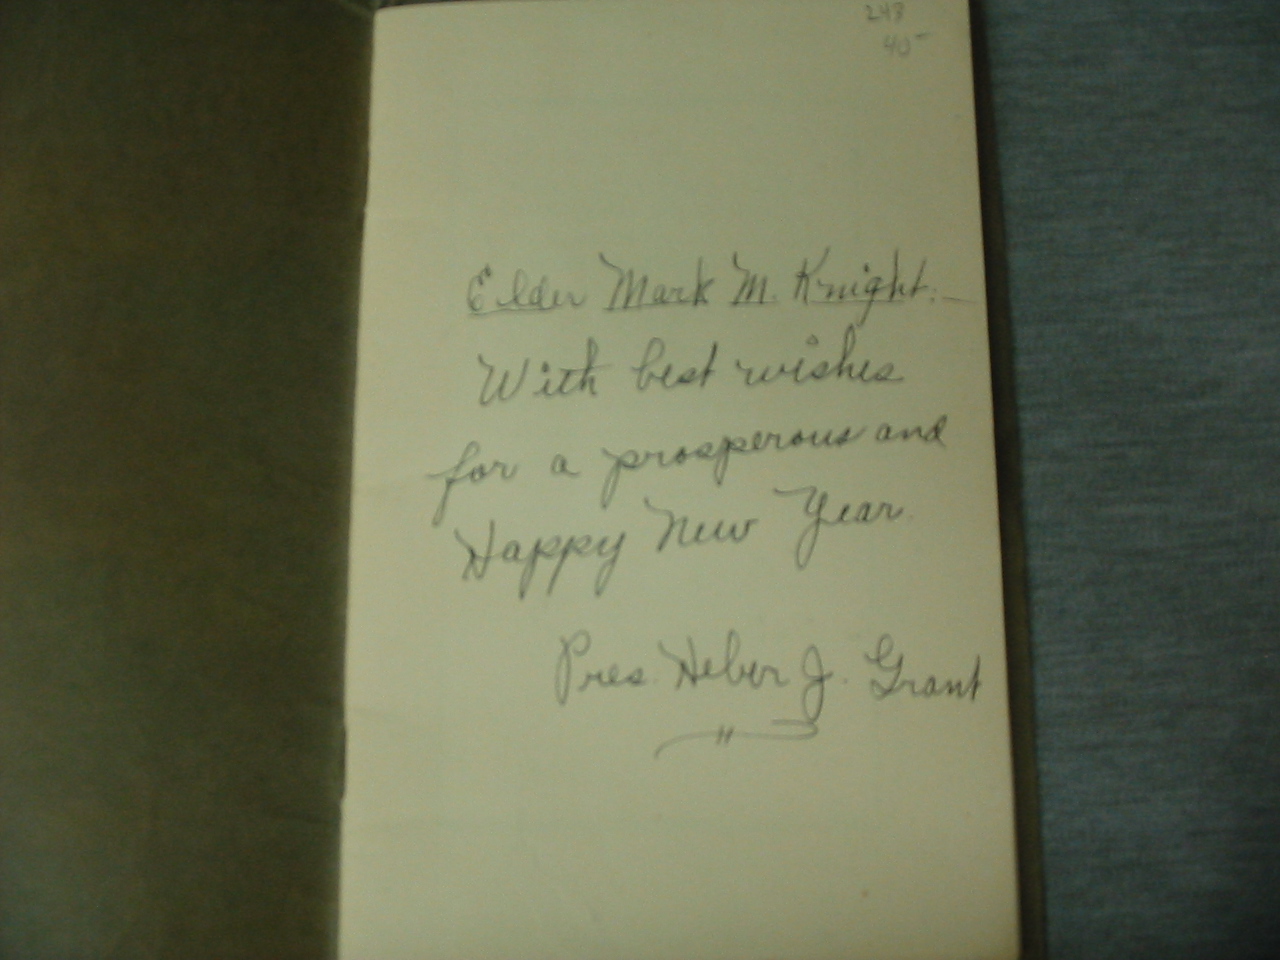 243
40-
Elder Mark M. Knight.
With best wishes
for a prosperous and
Happy New Year.
Pres. Heber J. Grant